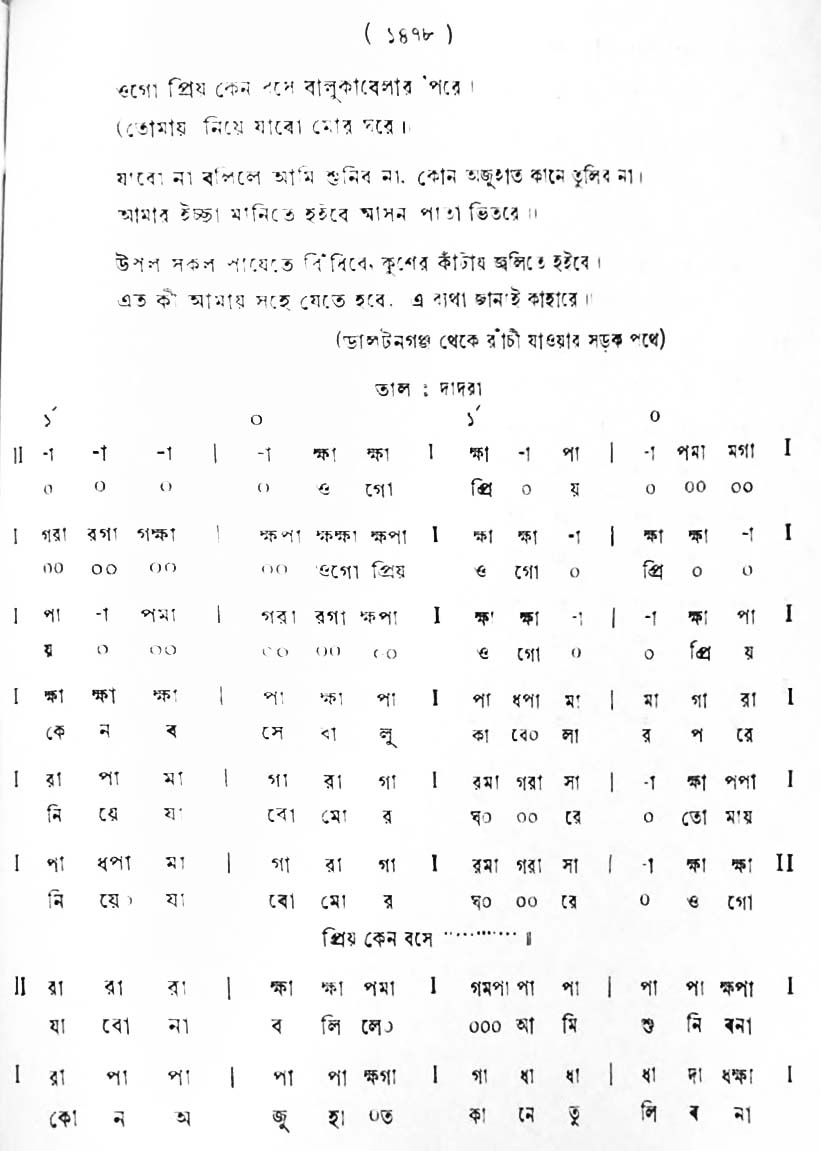 ( ১৪৭৮ )
ওগো প্রিয় কেন বসে বালুকাবেলার 'পরে।
(তোমায় নিয়ে যাবো মোর ঘরে॥
যাবো না বলিলে আমি শুনিব না, কোন অজুহাত কানে তুলিব না।
আমার ইচ্ছা মানিতে হইবে আসন পাতা ভিতরে॥
উপল সকল পায়েতে বিঁধিবে, কুশের কাঁটায় জ্বলিতে হইবে।
এত কী আমায় সহে যেতে হবে, এ ব্যথা জানাই কাহারে॥
(ডালটনগঞ্জ থেকে রাঁচী যাওয়ার সড়ক পথে)
তাল : দাদরা
১´ ০ ১´ ০
II -া -া -া | -া ক্ষা ক্ষা I ক্ষা -া পা | -া পমা মগা I
০ ০ ০ ০ ও গো প্রি ০ য় ০ ০০ ০০
I গরা রগা গক্ষা | ক্ষপা ক্ষক্ষা ক্ষপা I ক্ষা ক্ষা -া | ক্ষা ক্ষা -া I
০০ ০০ ০০ ০০ ওগো প্রিয় ও গো ০ প্রি ০ ০
I পা -া পমা | গরা রগা ক্ষপা I ক্ষা ক্ষা -া | -া ক্ষা পা I
য় ০ ০০ ০০ ০০ ০০ ও গো ০ ০ প্রি য়
I ক্ষা ক্ষা ক্ষা | পা ক্ষা পা I পা ধপা মা | মা গা রা I
কে ন ব সে বা লু কা বে০ লা র প রে
I রা পা মা | গা রা গা I রমা গরা সা | -া ক্ষা পপা I
নি য়ে যা বো মো র ঘ০ ০০ রে ০ তো মায়
I পা ধপা মা | গা রা গা I রমা গরা সা | -া ক্ষা ক্ষা II
নি য়ে০ যা বো মো র ঘ০ ০০ রে ০ ও গো
প্রিয় কেন বসে ············ ॥
II রা রা রা | ক্ষা ক্ষা পমা I গমপা পা পা | পা পা ক্ষপা I
যা বো না ব লি লে০ ০০০ আ মি শু নি বনা
I রা পা পা | পা পা ক্ষগা I গা ধা ধা | ধা দা ধক্ষা I
কো ন অ জু হা ০ত কা নে তু লি ব না